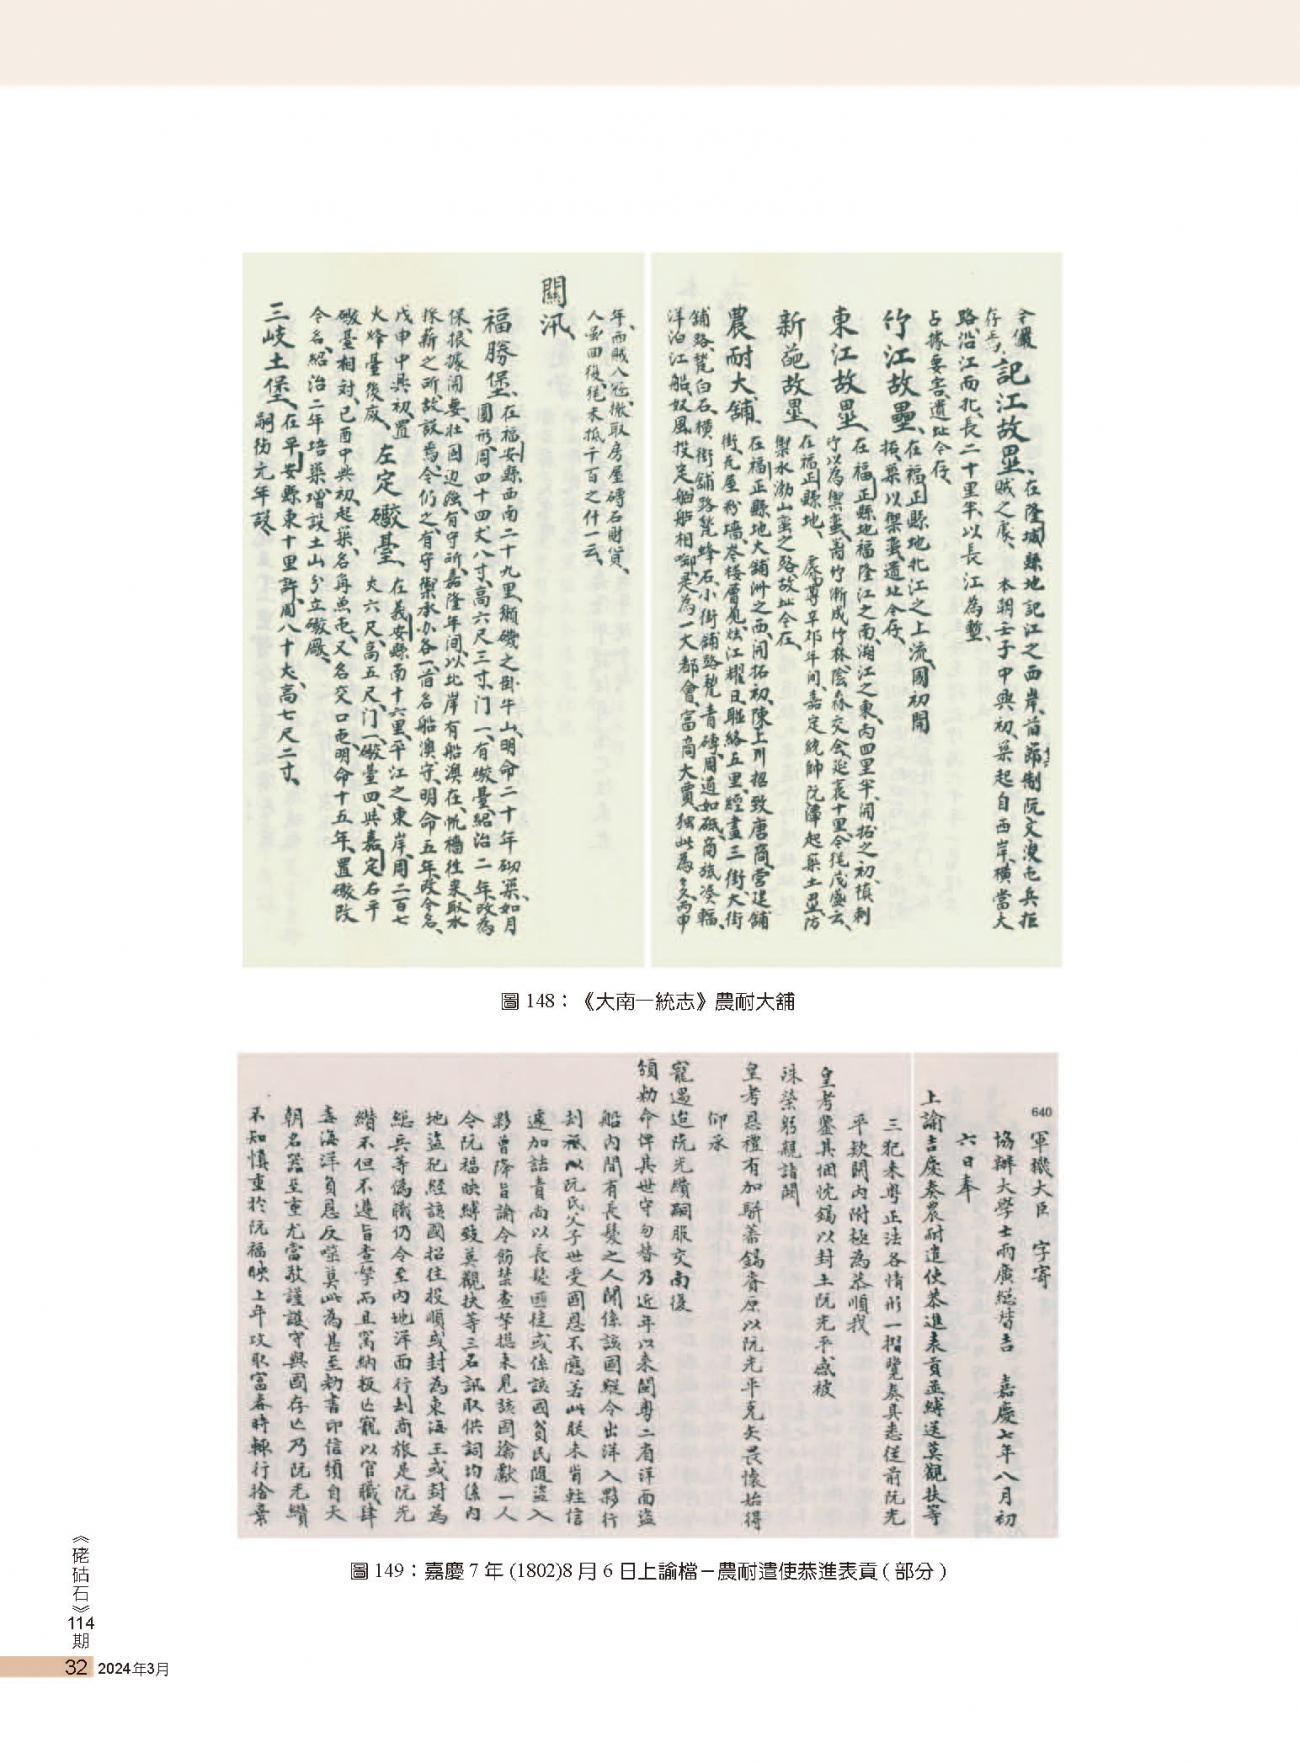 記江故壘、在隆城縣地記江之西岸、首節制阮文湊屯兵拒
賊之處、本朝壬子中興初、築起自西岸、橫當大
路沿江西北、長二十里半、以長江為塹、
占據要害遺址今存、
竹江故壘、在福正縣地北江之上流、國初開
拓、築以禦蠻遺址今存、
東江故壘、在福正縣地福隆江之南、湖江之東、內四里半、開拓之初植刺
竹以為禦蠻、簕竹漸成竹林陰森交會延袤十里、今猶茂盛云、
新葩故壘、在福正縣地、辛卯年間、嘉定統帥阮潭起築土壘防
禦水渤山蠻之路故址今在、
農耐大舖、在福正縣地大舖洲之西、開拓初陳上川招致唐商、營建舖
街、瓦屋粉墻、岑樓層觀、炫江耀日、聯絡五里、經畫三街、大街
舖路甃白石、橫街舖路甃蜂石、小街舖路甃青磚、周道如砥、商旅湊輻、
洋泊江船、收風投定、舳艫相啣、是為一大都會、富商大賈、獨此為多、丙申
年西賊入寇、撤取房屋磚石財貨、
人雖回復、猶未抵千百之什一云、
關汛
福勝堡、在福安縣西南二十九里獺磯之掛牛山、明命二十年砌築如月
圓形、周四十四丈八寸、高六尺三寸、門一、有礮臺、紹治二年改為
保、根據關要、壯固邊強、有守所、嘉隆年間、以北岸有船澳在、帆檣往來、取水
採薪之所、故設焉、今仍之、有守禦水分各一、首名船澳守、明命五年、改今名、
戊申中興初、置
火烽臺後廢、左定礮臺、在義安縣南十六里平江之東岸、周二百七
丈六尺、高五尺、門一、礮臺四、與嘉定右平
礮臺相對、己酉中興初、起築、名角魚屯、又名交口屯、明命十五年、置礮改
今名、紹治二年培築、增設土山、分立礮廠、
三岐土堡、在平安縣東十里許、周八十丈、高七尺二寸、
嗣德元年設、
圖 148：《大南一統志》農耐大舖
640
軍機大臣 字寄
協辦大學士兩廣總督吉 嘉慶七年八月初
六日奉
上諭吉慶奏農耐遣使恭進表貢並縛送莫觀扶等
三犯來粵正法各情形一摺覽奏具悉從前阮光
平款關內附極為恭順我
皇考鑒其悃忱錫以封土阮光平感被
殊榮躬親詣闕
皇考恩禮有加駢蕃錫賚原以阮光平克矢畏懷始得
仰承
寵遇迨阮光纘嗣服交南復
頒勅命俾其世守勿替乃近年以來閩粵二省洋面盜
船內間有長髮之人聞係該國縱令出洋入夥行
刦祗以阮氏父子世受國恩不應若此朕未肯輕信
遽加詰責尚以長髮匪徒或係該國貧民隨盜入
夥曾降旨諭令飭禁查拏總未見該國擒獻一人
今阮福映縛致莫觀扶等三名訊取供詞均係內
地盜犯經該國招往投順或封為東海王或封為
總兵等偽職仍令至內地洋面行刦商旅是阮光
纘不但不遵旨查拏而且窩納叛亡寵以官職肆
毒海洋負恩反噬莫此為甚至勅書印信頒自天
朝名器至重尤當敬謹護守與國存亡乃阮光纘
不知慎重於阮福映上年攻取富春時輒行捨棄
圖 149：嘉慶 7 年 (1802)8 月 6 日上諭檔－農耐遣使恭進表貢 ( 部分 )
《硓𥑮石》114期
32 2024年3月